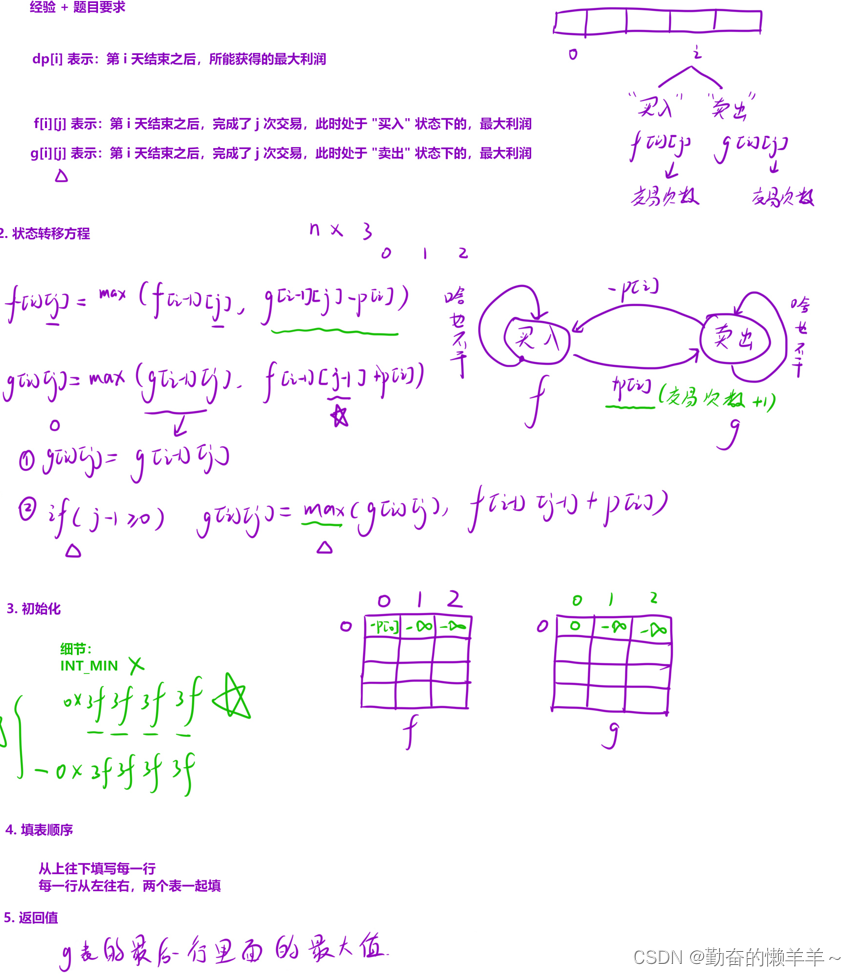 经验 + 题目要求
0 i
dp[i] 表示：第 i 天结束之后，所能获得的最大利润
"买入" "卖出"
f[i][j] 表示：第 i 天结束之后，完成了 j 次交易，此时处于 "买入" 状态下的，最大利润
f[i][j] g[i][j]
g[i][j] 表示：第 i 天结束之后，完成了 j 次交易，此时处于 "卖出" 状态下的，最大利润
交易次数 交易次数
2. 状态转移方程
n × 3
0 1 2
f[i][j] = max (f[i-1][j], g[i-1][j]-p[i])
啥也不干
-p[i]
啥也不干
买入 卖出
g[i][j] = max (g[i-1][j], f[i-1][j-1]+p[i])
+p[i] (交易次数 +1)
f g
0
① g[i][j] = g[i-1][j]
② if( j-1 ≥ 0 ) g[i][j] = max(g[i][j], f[i-1][j-1] + p[i])
3. 初始化
0 1 2
0 -p[0] -∞ -∞
f
0 1 2
0 0 -∞ -∞
g
细节：
INT_MIN ×
0x3f3f3f3f
-0x3f3f3f3f
4. 填表顺序
从上往下填写每一行
每一行从左往右，两个表一起填
5. 返回值
g表的最后一行里面的最大值.
CSDN @勤奋的懒羊羊～